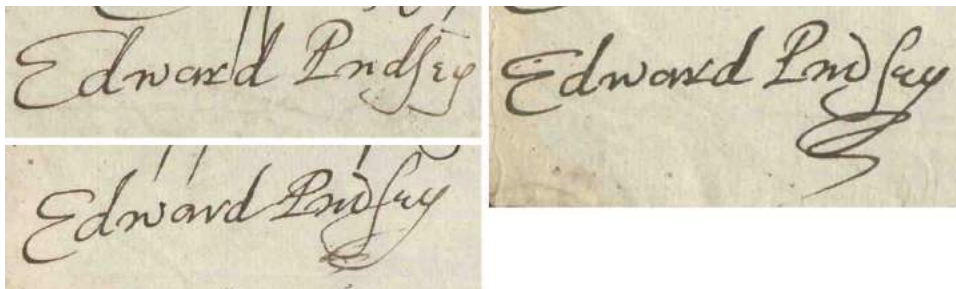 Edward Pudsey
Edward Pudsey
Edward Pudsey